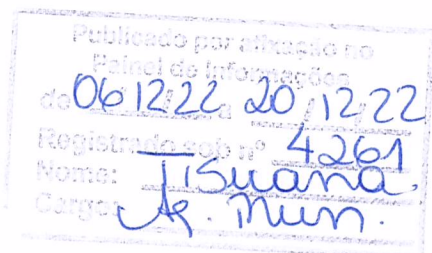 Publicado por afixação no
Painel de Informações
de 06 12 22 a 20 / 12 / 22
Registrado sob nº 4261
Nome: Tisuana.
Cargo: Ag. Mun.